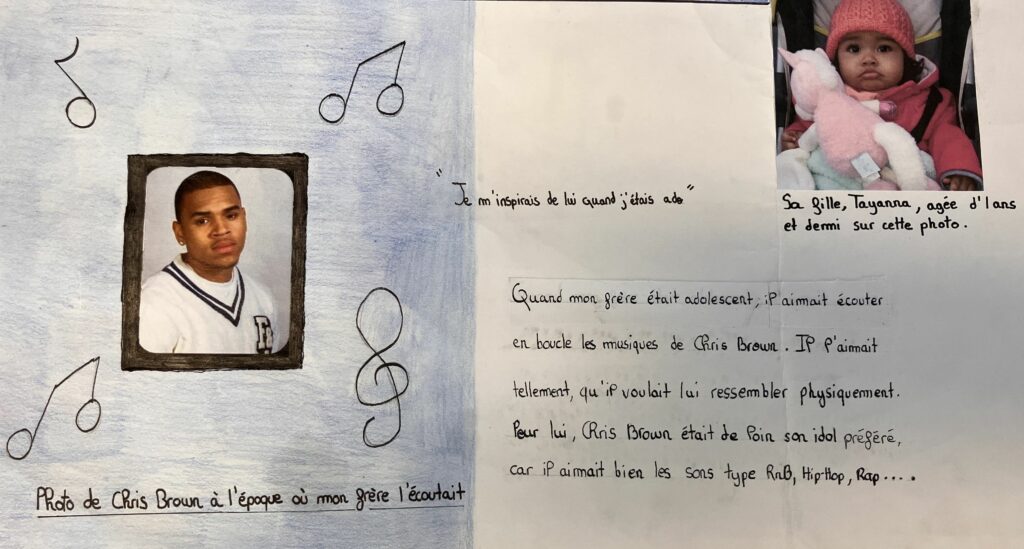 "Je m'inspirais de lui quand j'étais ado"
Sa fille, Tayanna, agée d'1 ans
et demi sur cette photo.
Quand mon frère était adolescent, il aimait écouter
en boucle les musiques de Chris Brown. Il l'aimait
tellement, qu'il voulait lui ressembler physiquement.
Pour lui, Chris Brown était de loin son idol préféré,
car il aimait bien les sons type RnB, Hip-Hop, Rap.....
Photo de Chris Brown à l'époque où mon frère l'écoutait